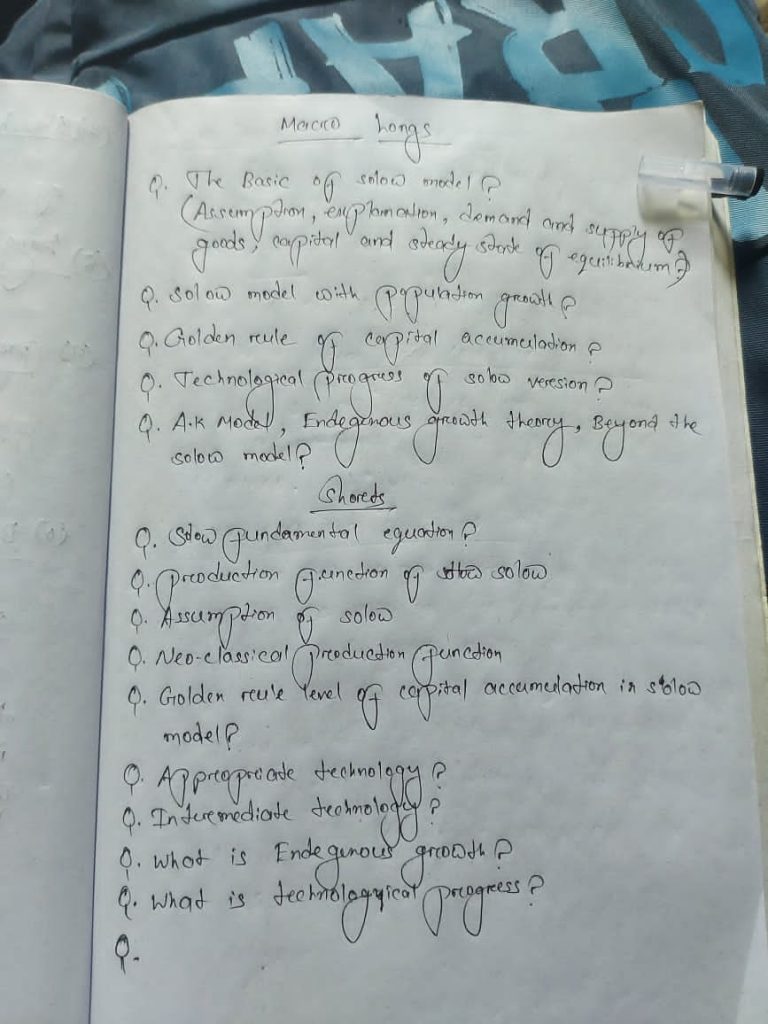 Macro Longs
Q. The Basic of solow model?
(Assumption, explanation, demand and supply of
goods, capital and steady state of equilibrium?)
Q. Solow model with population growth?
Q. Golden rule of capital accumulation?
Q. Technological progress of solow version?
Q. A.K Model, Endegenous growth theory, Beyond the
solow model?
Shorts
Q. Solow fundamental equation?
Q. production function of solow
Q. Assumption of solow
Q. Neo-classical production function
Q. Golden rule level of capital accumulation in solow
model?
Q. Appropriate technology?
Q. Intermediate technology?
Q. What is Endegenous growth?
Q. What is technological progress?
Q.